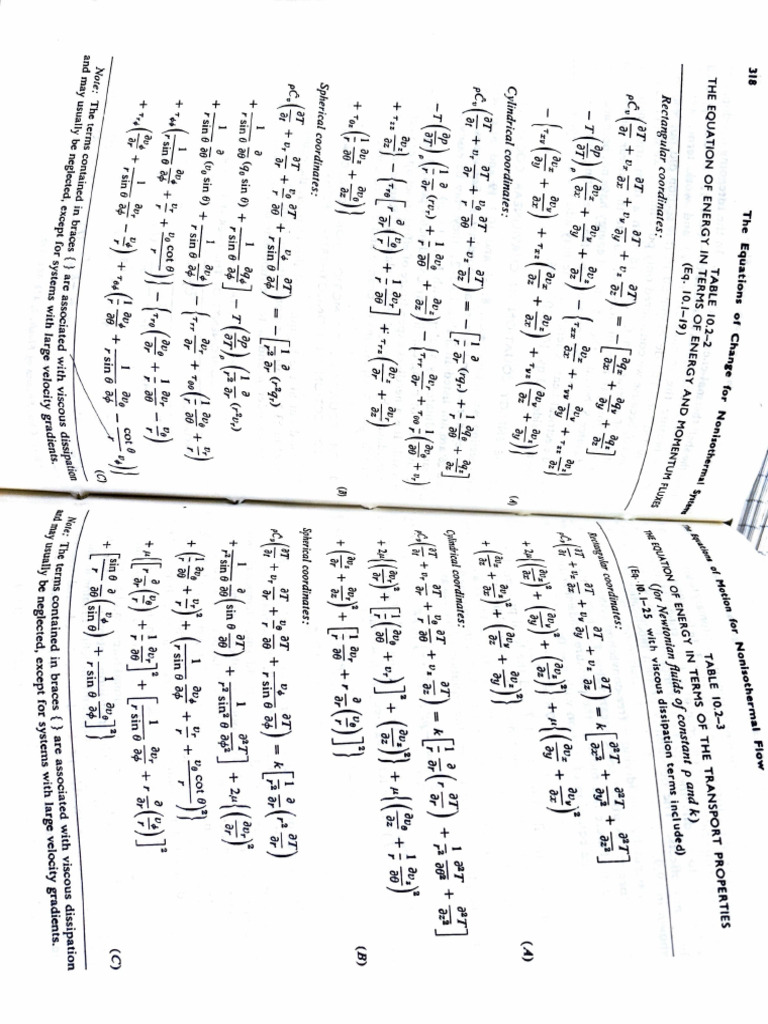 318
The Equations of Change for Nonisothermal Systems
TABLE 10.2–2
THE EQUATION OF ENERGY IN TERMS OF ENERGY AND MOMENTUM FLUXES
(Eq. 10.1–19)
Rectangular coordinates:
ρĈ_v(∂T/∂t + v_x ∂T/∂x + v_y ∂T/∂y + v_z ∂T/∂z) = −[∂q_x/∂x + ∂q_y/∂y + ∂q_z/∂z]
− T(∂p/∂T)_ρ(∂v_x/∂x + ∂v_y/∂y + ∂v_z/∂z) − {τ_xx ∂v_x/∂x + τ_yy ∂v_y/∂y + τ_zz ∂v_z/∂z}
− {τ_xy(∂v_x/∂y + ∂v_y/∂x) + τ_xz(∂v_x/∂z + ∂v_z/∂x) + τ_yz(∂v_y/∂z + ∂v_z/∂y)}
(A)
Cylindrical coordinates:
ρĈ_v(∂T/∂t + v_r ∂T/∂r + v_θ/r ∂T/∂θ + v_z ∂T/∂z) = −[1/r ∂/∂r (rq_r) + 1/r ∂q_θ/∂θ + ∂q_z/∂z]
− T(∂p/∂T)_ρ(1/r ∂/∂r (rv_r) + 1/r ∂v_θ/∂θ + ∂v_z/∂z) − {τ_rr ∂v_r/∂r + τ_θθ 1/r(∂v_θ/∂θ + v_r)
+ τ_zz ∂v_z/∂z} − {τ_rθ[r ∂/∂r(v_θ/r) + 1/r ∂v_r/∂θ] + τ_rz(∂v_z/∂r + ∂v_r/∂z)
+ τ_θz(1/r ∂v_z/∂θ + ∂v_θ/∂z)}
(B)
Spherical coordinates:
ρĈ_v(∂T/∂t + v_r ∂T/∂r + v_θ/r ∂T/∂θ + v_ϕ/(r sin θ) ∂T/∂ϕ) = −[1/r² ∂/∂r (r²q_r)
+ 1/(r sin θ) ∂/∂θ (q_θ sin θ) + 1/(r sin θ) ∂q_ϕ/∂ϕ] − T(∂p/∂T)_ρ(1/r² ∂/∂r (r²v_r)
+ 1/(r sin θ) ∂/∂θ (v_θ sin θ) + 1/(r sin θ) ∂v_ϕ/∂ϕ) − {τ_rr ∂v_r/∂r + τ_θθ(1/r ∂v_θ/∂θ + v_r/r)
+ τ_ϕϕ(1/(r sin θ) ∂v_ϕ/∂ϕ + v_r/r + v_θ cot θ/r)} − {τ_rθ(∂v_θ/∂r + 1/r ∂v_r/∂θ − v_θ/r)
+ τ_rϕ(∂v_ϕ/∂r + 1/(r sin θ) ∂v_r/∂ϕ − v_ϕ/r) + τ_θϕ(1/r ∂v_ϕ/∂θ + 1/(r sin θ) ∂v_θ/∂ϕ − cot θ/r v_ϕ)}
(C)
Note: The terms contained in braces { } are associated with viscous dissipation
and may usually be neglected, except for systems with large velocity gradients.
Equations of Motion for Nonisothermal Flow
TABLE 10.2–3
THE EQUATION OF ENERGY IN TERMS OF THE TRANSPORT PROPERTIES
(for Newtonian fluids of constant ρ and k)
(Eq. 10.1–25 with viscous dissipation terms included)
Rectangular coordinates:
ρĈ(∂T/∂t + v_x ∂T/∂x + v_y ∂T/∂y + v_z ∂T/∂z) = k[∂²T/∂x² + ∂²T/∂y² + ∂²T/∂z²]
+ 2μ{(∂v_x/∂x)² + (∂v_y/∂y)² + (∂v_z/∂z)²} + μ{(∂v_x/∂y + ∂v_y/∂x)²
+ (∂v_x/∂z + ∂v_z/∂x)² + (∂v_y/∂z + ∂v_z/∂y)²}
(A)
Cylindrical coordinates:
ρĈ(∂T/∂t + v_r ∂T/∂r + v_θ/r ∂T/∂θ + v_z ∂T/∂z) = k[1/r ∂/∂r(r ∂T/∂r) + 1/r² ∂²T/∂θ² + ∂²T/∂z²]
+ 2μ{(∂v_r/∂r)² + [1/r(∂v_θ/∂θ + v_r)]² + (∂v_z/∂z)²} + μ{(∂v_θ/∂z + 1/r ∂v_z/∂θ)²
+ (∂v_z/∂r + ∂v_r/∂z)² + [1/r ∂v_r/∂θ + r ∂/∂r(v_θ/r)]²}
(B)
Spherical coordinates:
ρĈ(∂T/∂t + v_r ∂T/∂r + v_θ/r ∂T/∂θ + v_ϕ/(r sin θ) ∂T/∂ϕ) = k[1/r² ∂/∂r(r² ∂T/∂r)
+ 1/(r² sin θ) ∂/∂θ(sin θ ∂T/∂θ) + 1/(r² sin² θ) ∂²T/∂ϕ²] + 2μ{(∂v_r/∂r)²
+ (1/r ∂v_θ/∂θ + v_r/r)² + (1/(r sin θ) ∂v_ϕ/∂ϕ + v_r/r + v_θ cot θ/r)²}
+ μ{[r ∂/∂r(v_θ/r) + 1/r ∂v_r/∂θ]² + [1/(r sin θ) ∂v_r/∂ϕ + r ∂/∂r(v_ϕ/r)]²
+ [sin θ/r ∂/∂θ(v_ϕ/sin θ) + 1/(r sin θ) ∂v_θ/∂ϕ]²}
(C)
Note: The terms contained in braces { } are associated with viscous dissipation
and may usually be neglected, except for systems with large velocity gradients.